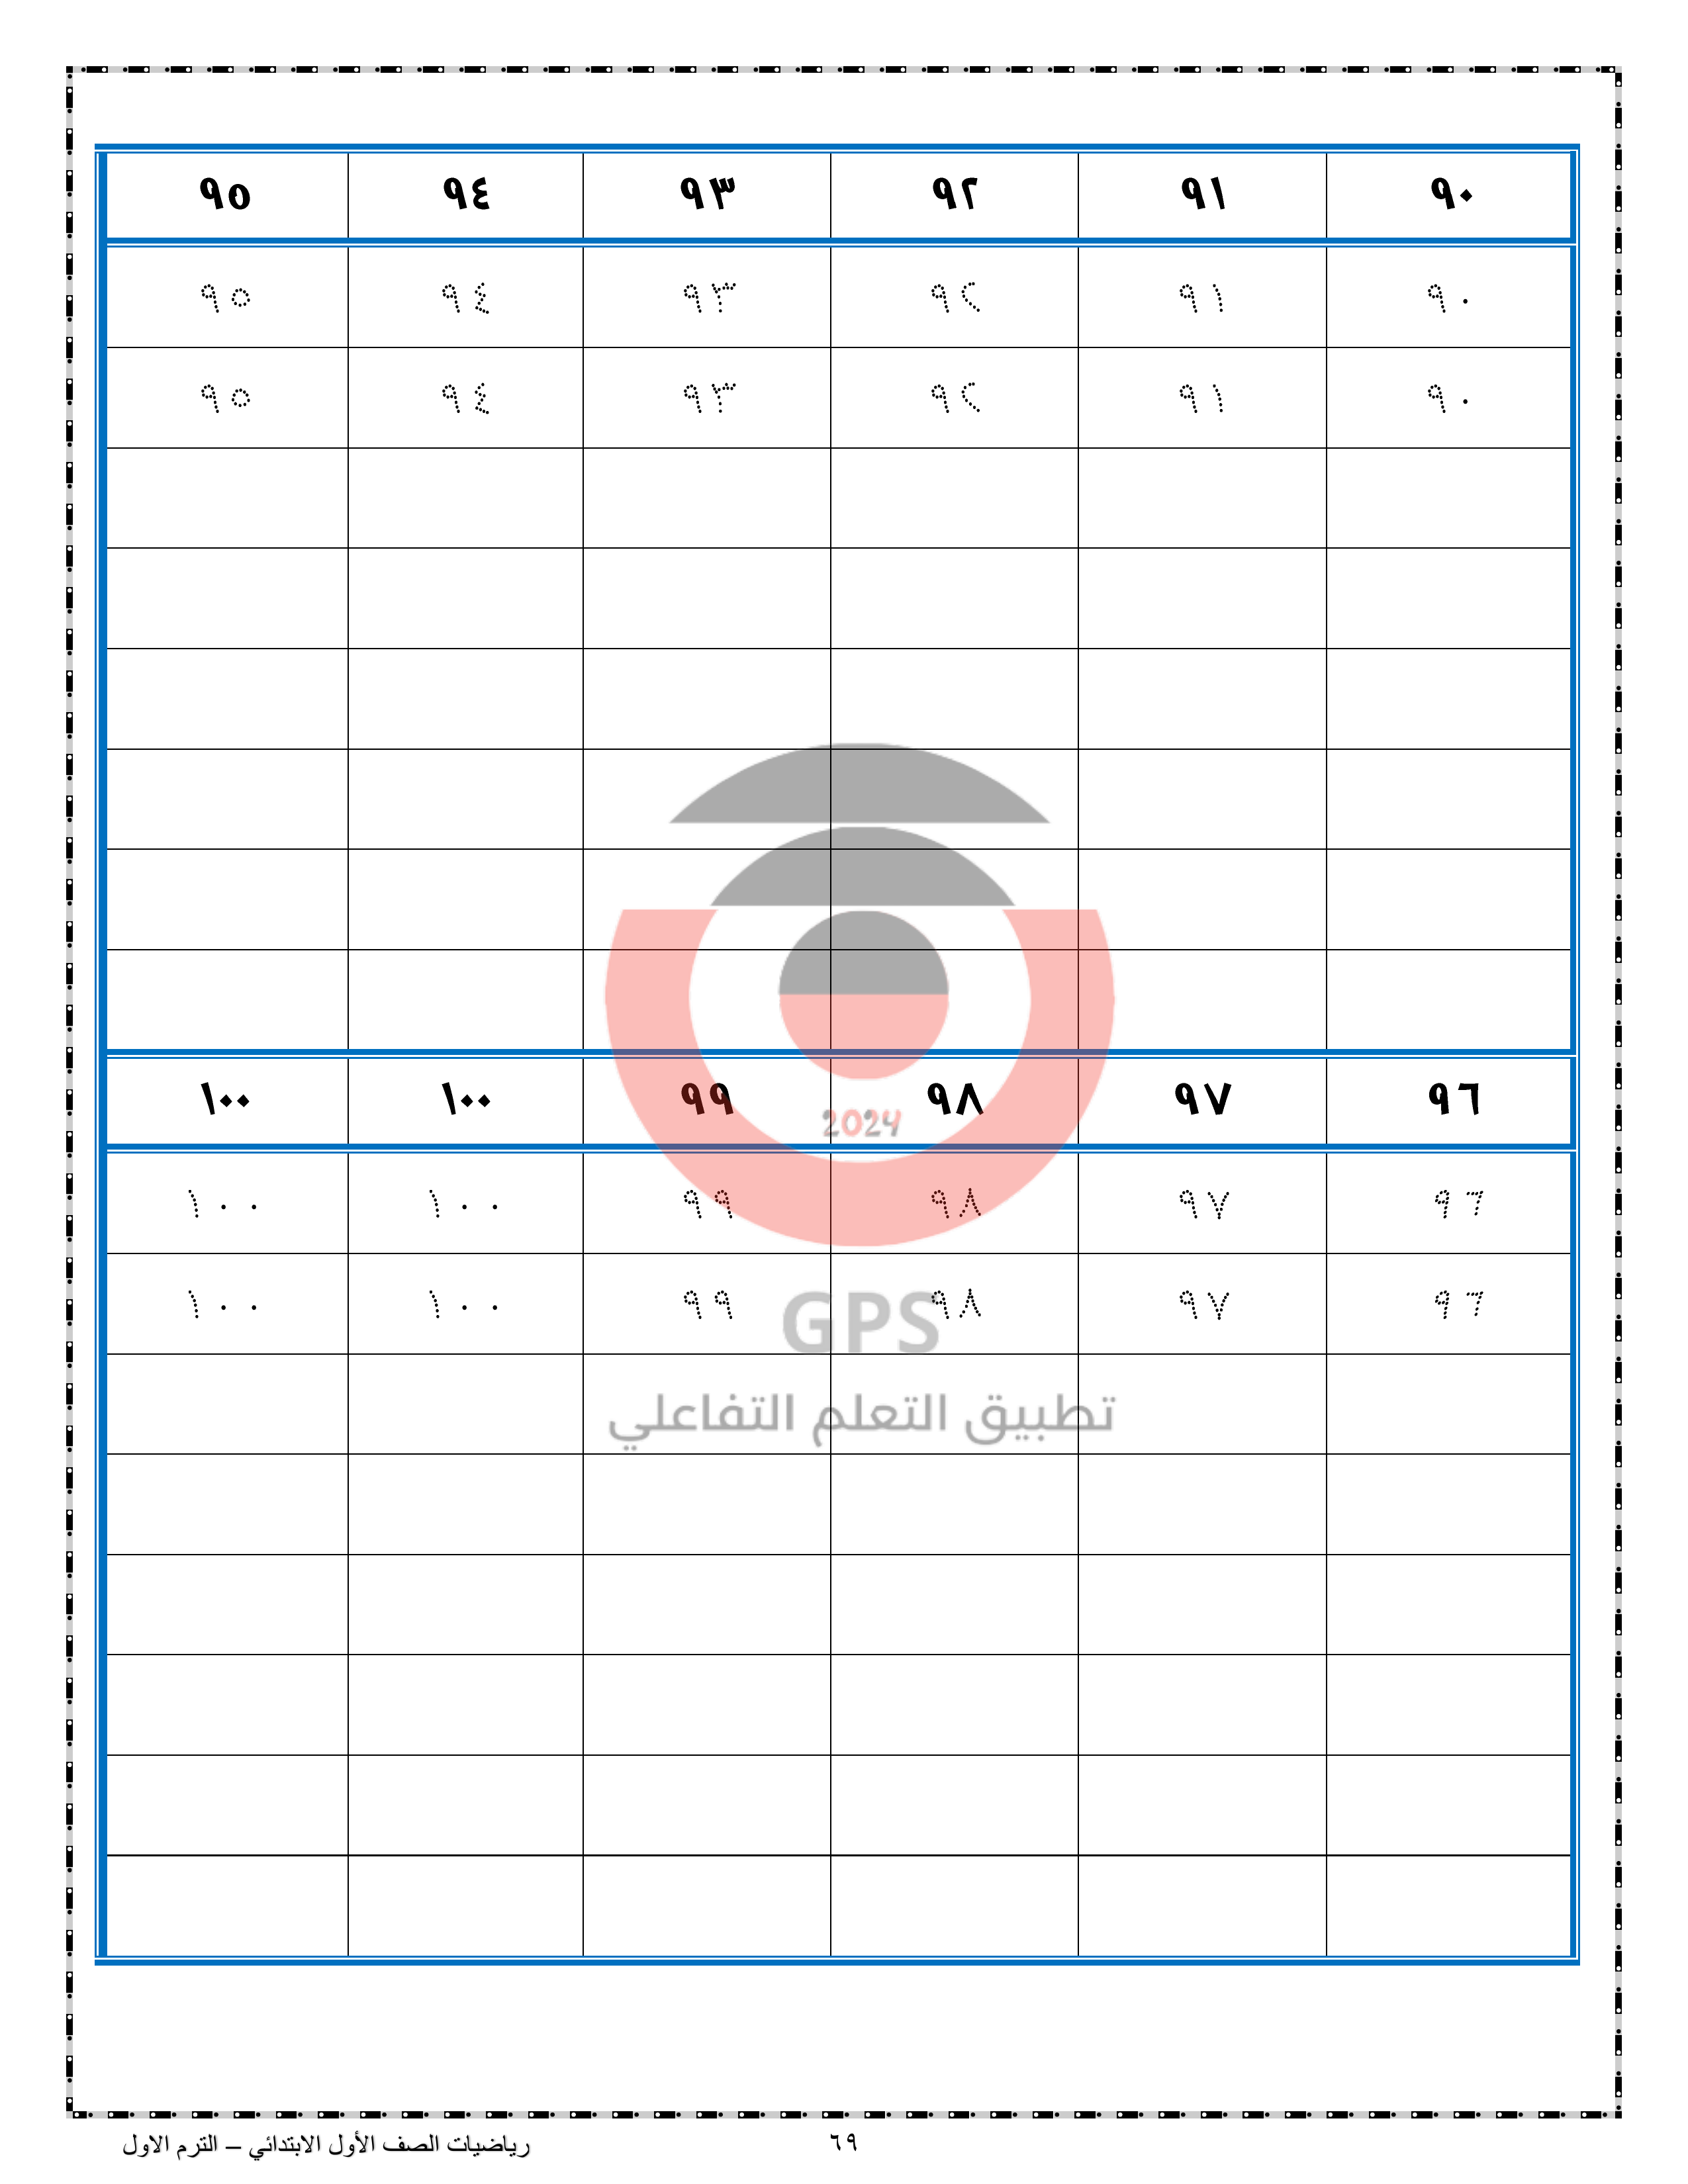 ٩٠ ٩١ ٩٢ ٩٣ ٩٤ ٩٥
٩٠ ٩١ ٩٢ ٩٣ ٩٤ ٩٥
٩٠ ٩١ ٩٢ ٩٣ ٩٤ ٩٥
٩٦ ٩٧ ٩٨ ٩٩ ١٠٠ ١٠٠
2024
٩٦ ٩٧ ٩٨ ٩٩ ١٠٠ ١٠٠
٩٦ ٩٧ ٩٨ ٩٩ ١٠٠ ١٠٠
GPS
تطبيق التعلم التفاعلي
٦٩ رياضيات الصف الأول الابتدائي – الترم الاول